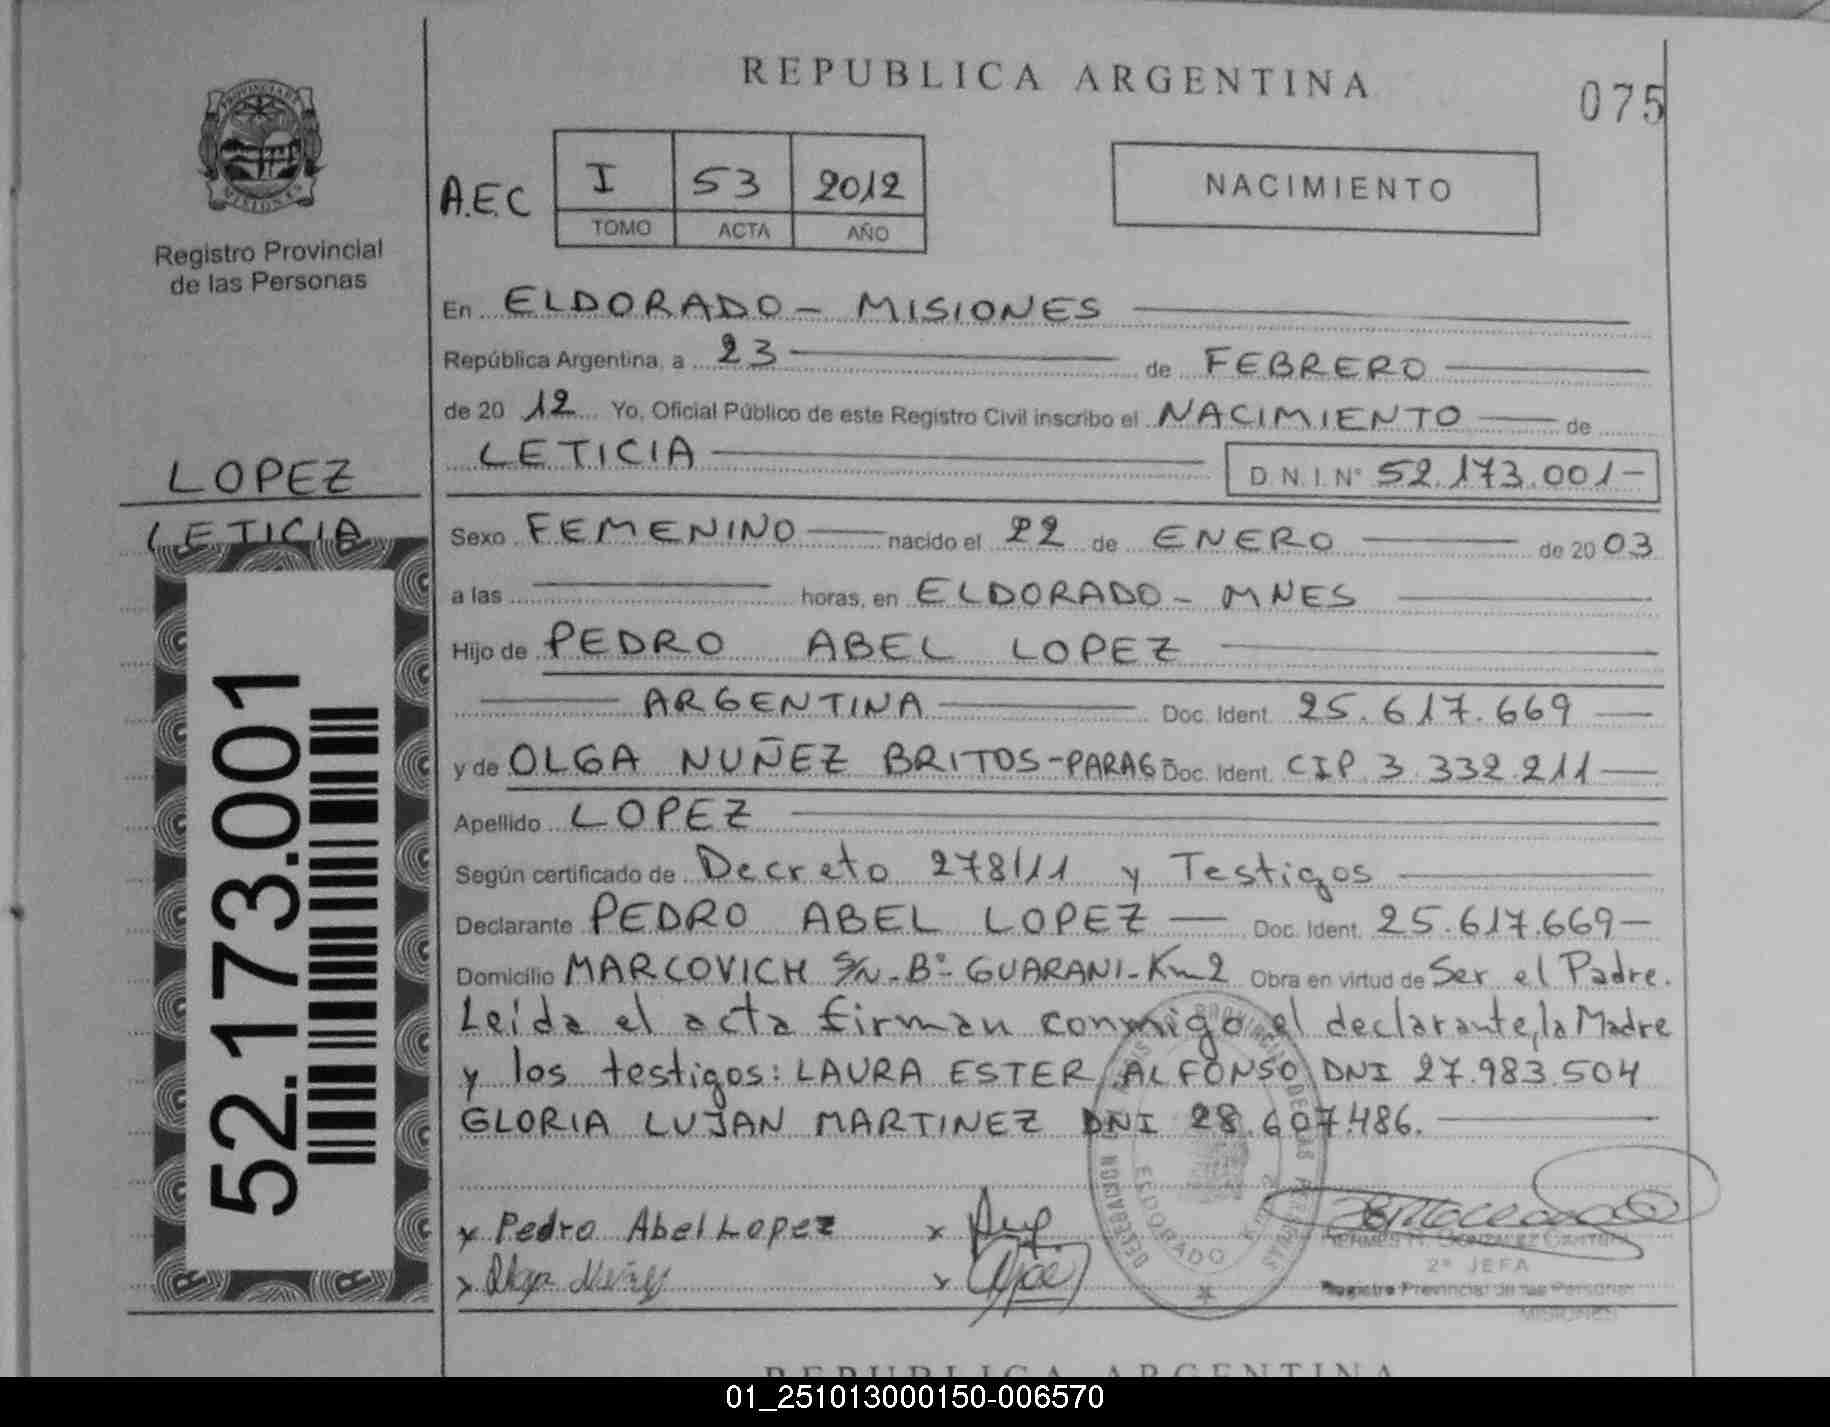 REPUBLICA ARGENTINA
075
PROVINCIA DE MISIONES
Registro Provincial
de las Personas
A.E.C I 53 2012
TOMO ACTA AÑO
NACIMIENTO
En ELDORADO - MISIONES
República Argentina, a 23 de FEBRERO
de 20 12 Yo, Oficial Público de este Registro Civil inscribo el NACIMIENTO de
LETICIA D.N.I. N° 52.173.001-
LOPEZ
LETICIA
52.173.001
Sexo FEMENINO nacido el 22 de ENERO de 20 03
a las horas, en ELDORADO - MNES
Hijo de PEDRO ABEL LOPEZ
ARGENTINA Doc. Ident. 25.617.669
y de OLGA NUÑEZ BRITOS-PARAG- Doc. Ident. CIP 3.332.211
Apellido LOPEZ
Según certificado de Decreto 278/11 y Testigos
Declarante PEDRO ABEL LOPEZ Doc. Ident. 25.617.669-
Domicilio MARCOVICH S/N.-B°-GUARANI-Km2 Obra en virtud de Ser el Padre.
Leída el acta firman conmigo el declarante, la Madre
y los testigos: LAURA ESTER ALFONSO DNI 27.983.504
GLORIA LUJAN MARTINEZ DNI 28.607.486.
x Pedro Abel Lopez x
x Olga Nuñez x
ELDORADO
2° JEFA
Registro Provincial de las Personas
MISIONES
REPUBLICA ARGENTINA
01_251013000150-006570